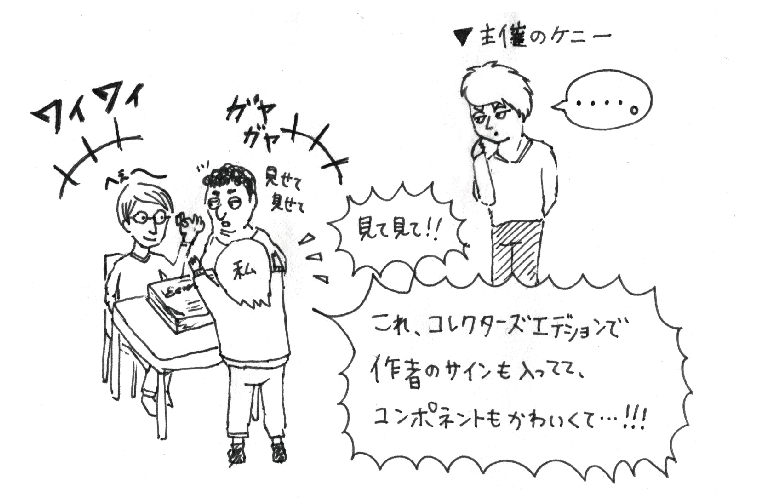 ▼主催のケニー
・・・・。
ワイワイ
ガヤ
ガヤ
へぇ〜
見せて
見せて
私
見て見て!!
これ、コレクターズエデションで
作者のサインも入ってて、
コンポネントもかわいくて…!!!